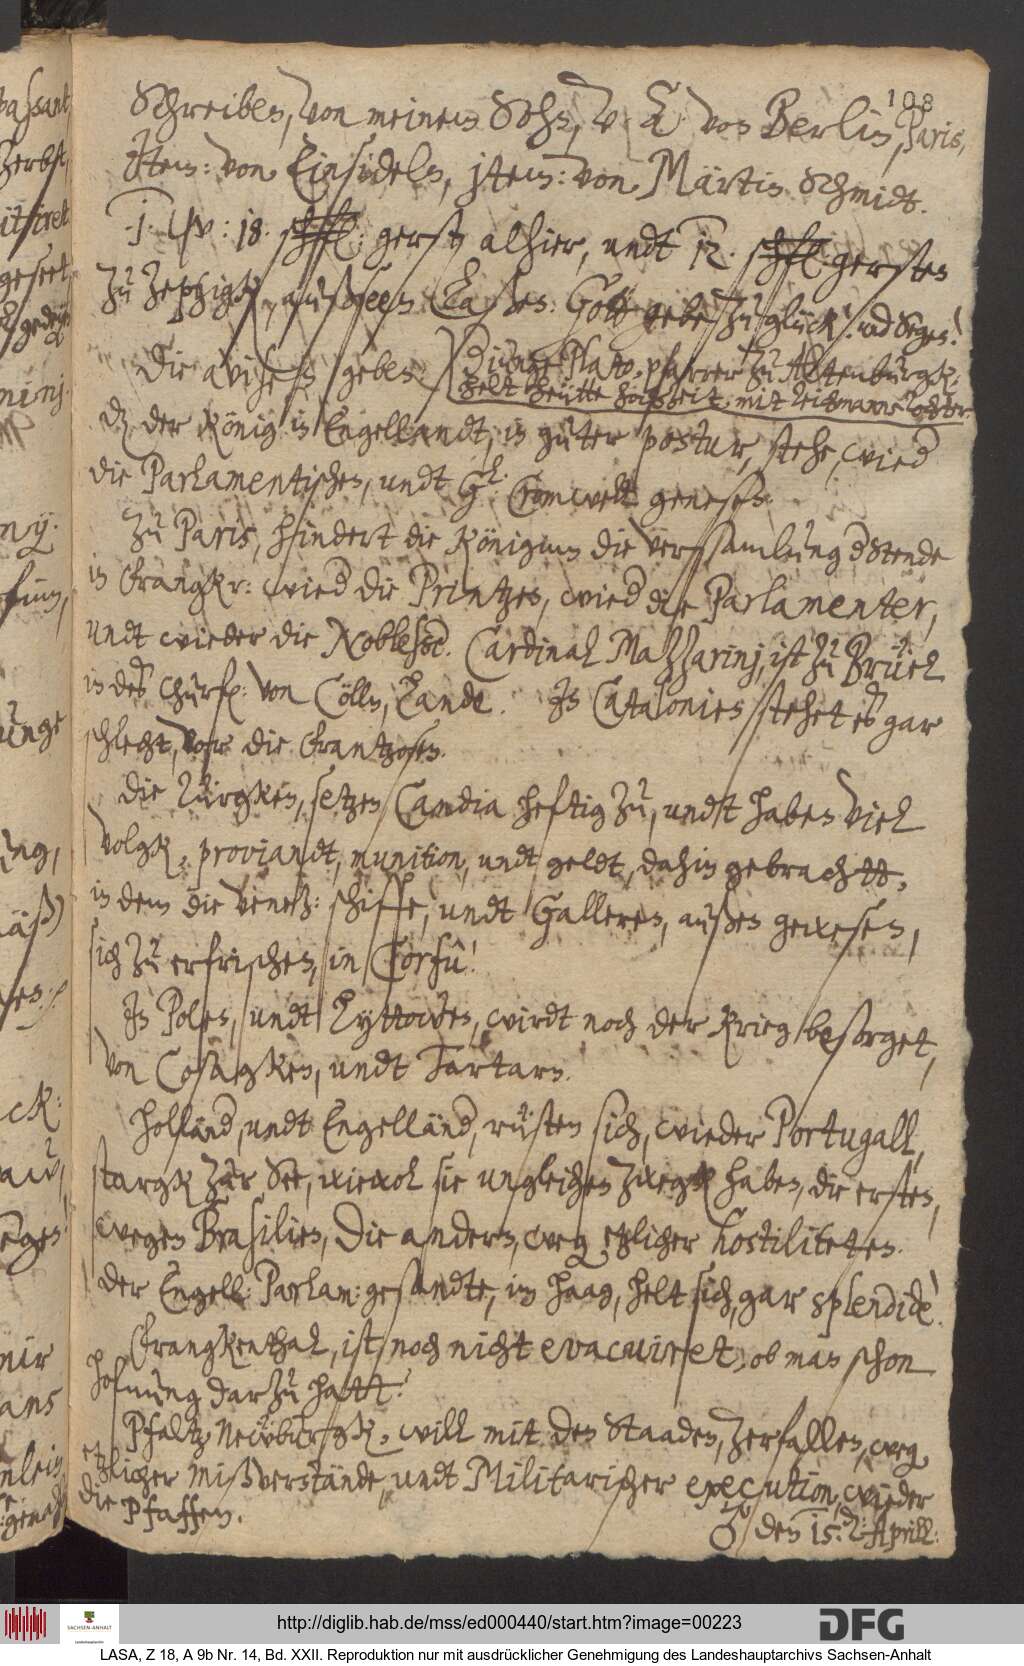 108
Schreiben, von meinem Sohn, V: A von Berlin, Paris,
Item: von Einsideln, jtem: von Märtin Schmidt.
.1. Wsp: 18. schfl: gerste alhier, undt 12. schfl gersten
zu Zeptzigk, außseen laßen. Gott gebe, zu glück! und Segen!
Die avisen geben:
Diunge Plato, pfarrer zu Altenburgk,
helt heütte hochzeit, mit leithmanns Tochter.
dz der König in Engellandt, in guter postur, stehe, wied
die Parlamentischen, undt Gl. Cromwell genesen.
Zu Paris, hindert die Königinn die versamlung d Stende
in Frangkr: wied die Printzen, wied die Parlamenter,
undt wieder die Noblesse. Cardinal Mazzarinj, ist zu Brüel
in des Churf: von Cölln, Lande. In Catalonien stehet es gar
schlecht, vor die Frantzosen.
Die Türgken, setzen Candia heftig zu, undt haben viel
volgk, proviandt, munition, undt geldt, dahin gebrachtt,
in dem die Venetz: schiffe, undt Galleren, außen gewesen,
sich zu erfrischen, in Corfu!
In Polen, undt Lyttowen, wirdt noch der Krieg besorget,
von Cosagken, undt Tartarn.
Holländ, undt Engelländ, rüsten sich, wieder Portugall,
stargk zur See, wiewol sie ungleichen zwegk haben, die ersten,
wegen Brasilien, Die andern, weg etzlicher hostiliteten.
Der Engell: Parlam: gesandte, im Haag, helt sich, gar splendide!
Frangkenthal, ist noch nicht evacuiret, ob man schon
hofnung darzu hatt.
Pfaltz Newburgk, will mit den Staaden, zerfallen, weg
etzlicher mißverstände, undt Militarischer execution, wieder
die Pfaffen.
♂ den 15. Aprill:
http://diglib.hab.de/mss/ed000440/start.htm?image=00223
SACHSEN-ANHALT
DFG
LASA, Z 18, A 9b Nr. 14, Bd. XXII. Reproduktion nur mit ausdrücklicher Genehmigung des Landeshauptarchivs Sachsen-Anhalt